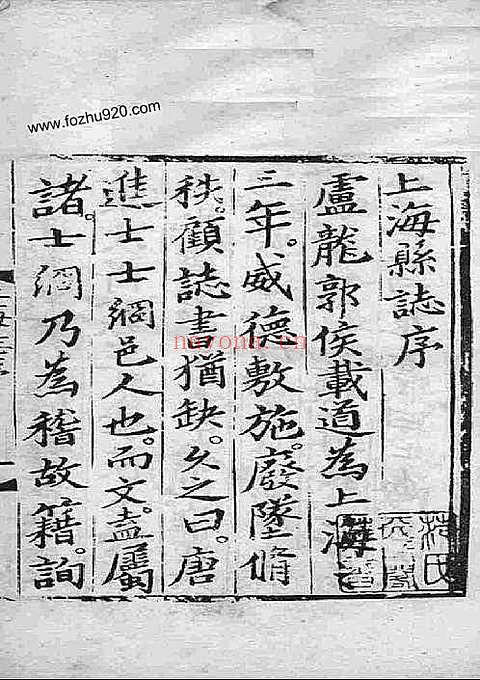 www.fozhu920.com
上海縣誌序
盧龍郭侯載道為上海之
三年。威德敷施。廢墜脩
秩。顧誌書猶缺。久之曰。唐
進士士綱邑人也。而文盍屬
諸。士綱乃為稽故籍。詢
nayona.cn
范氏